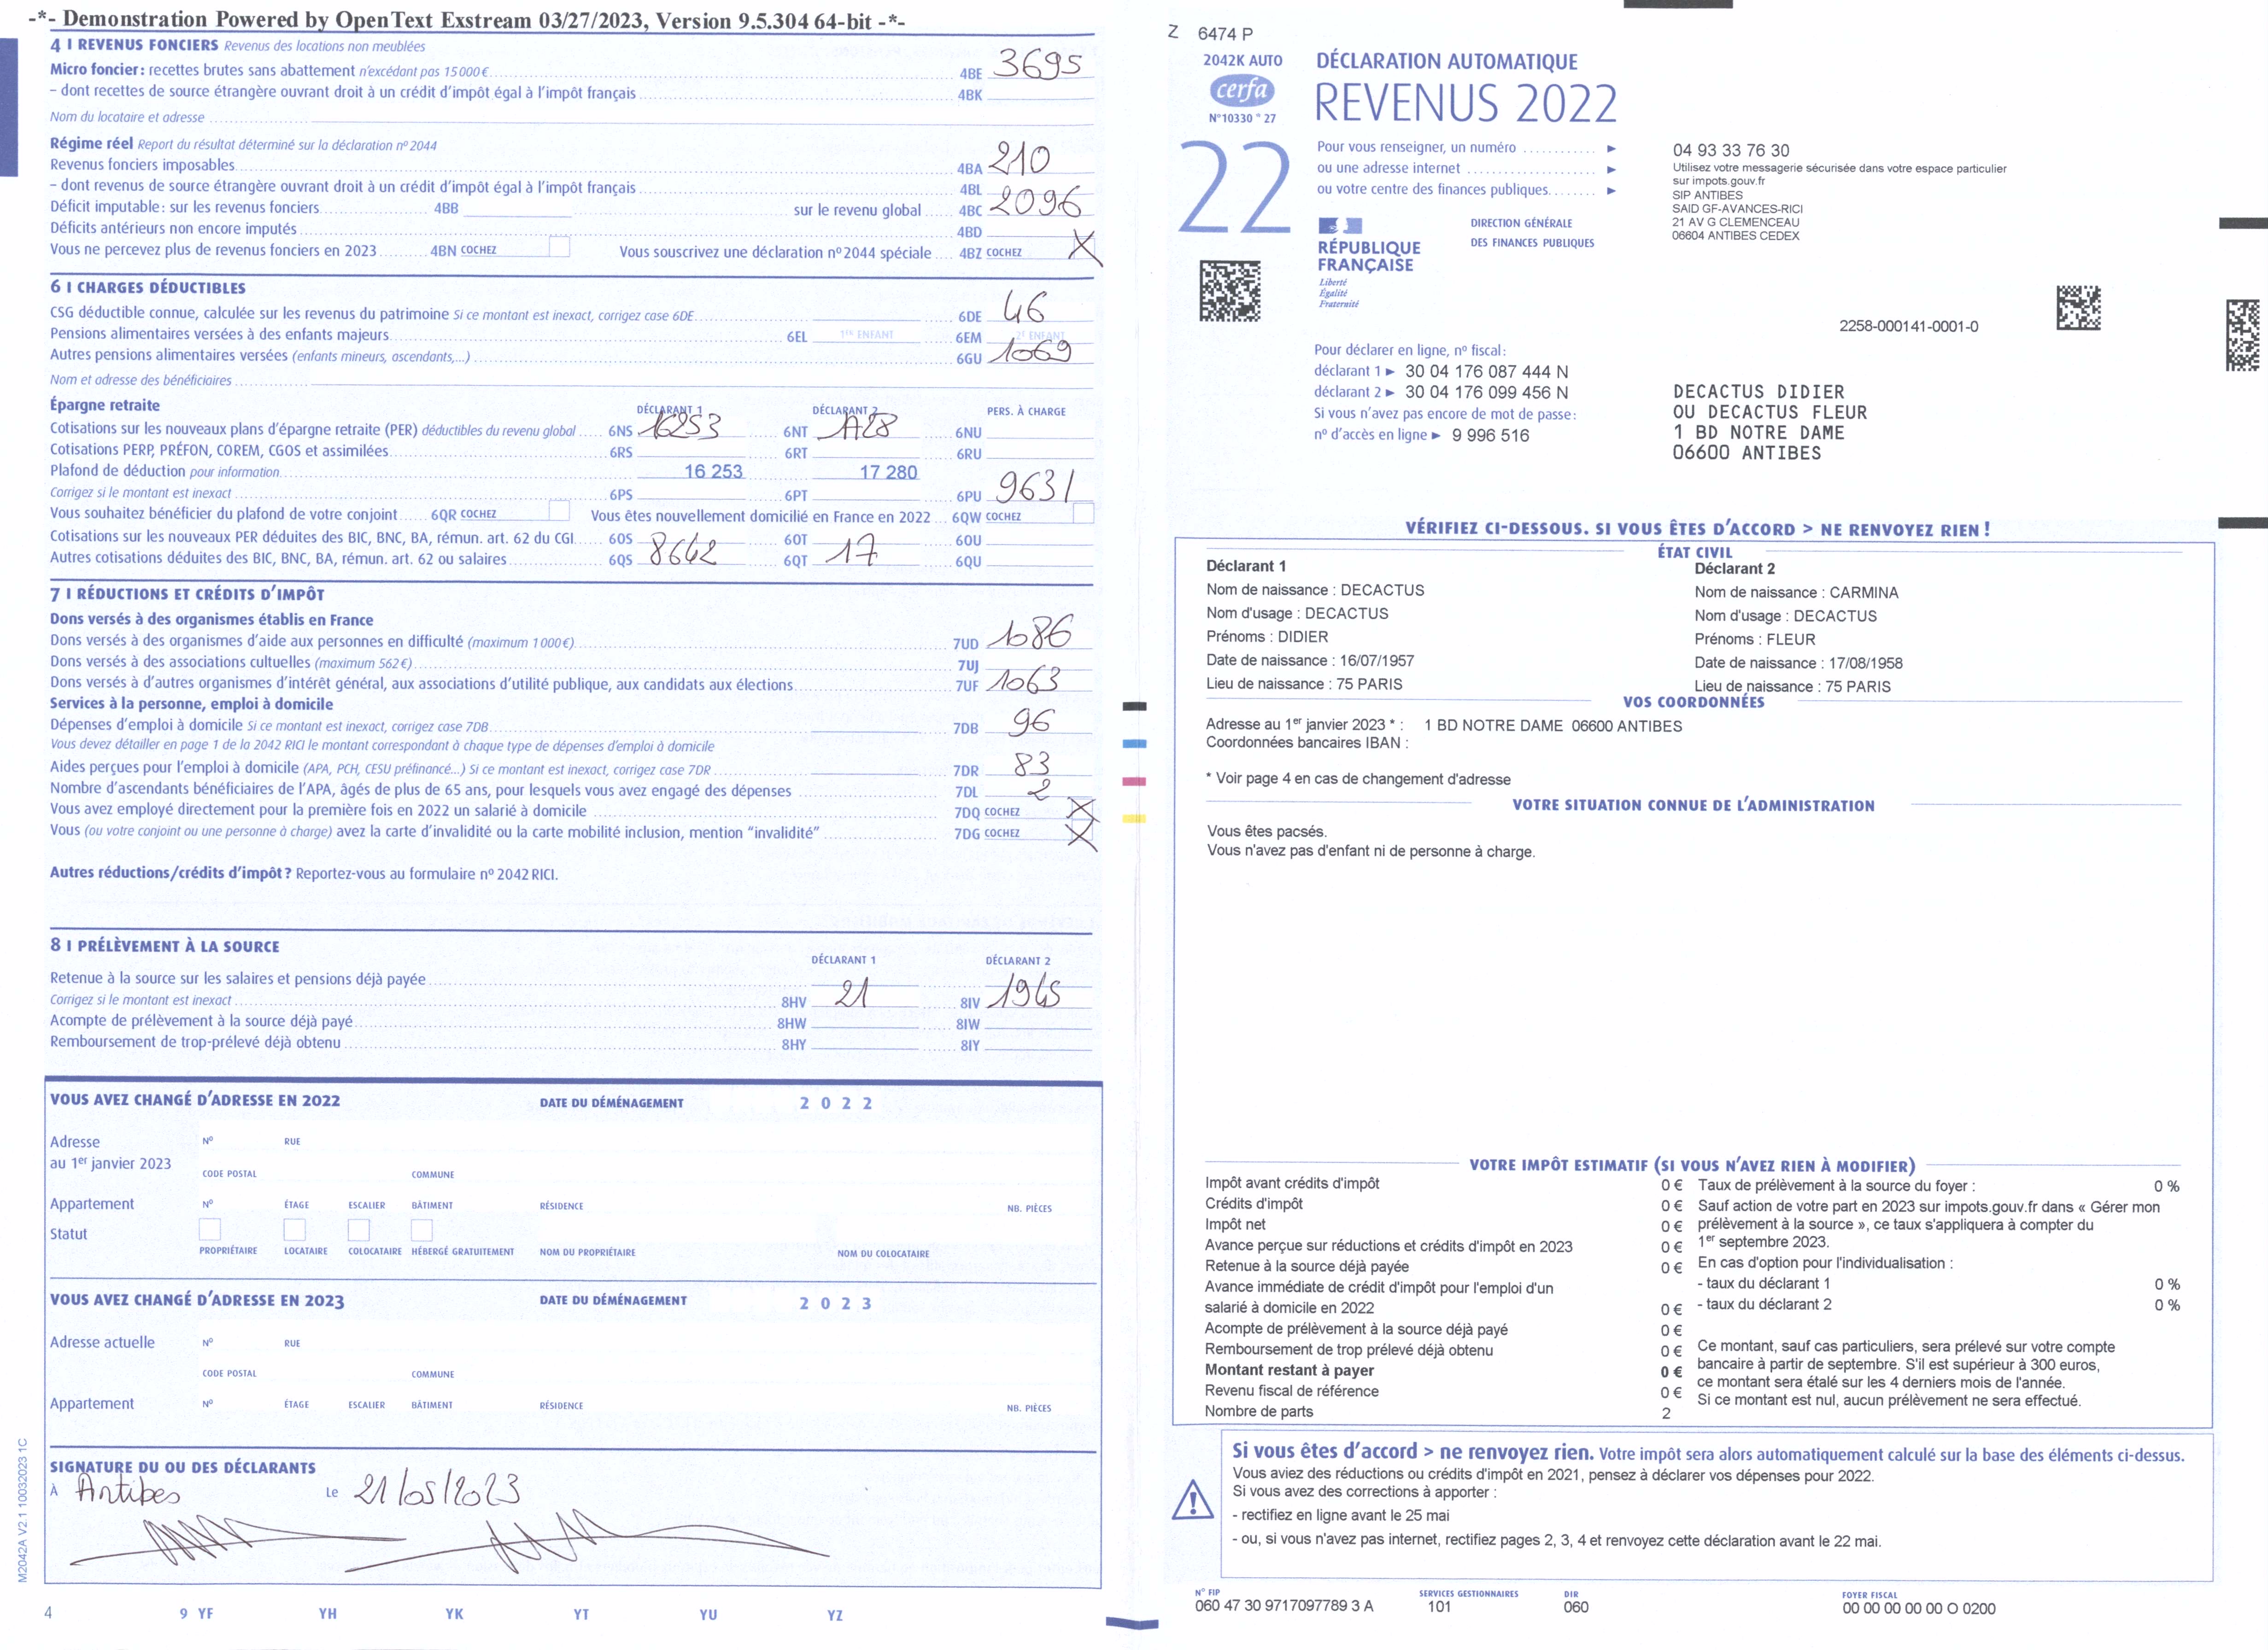 -*- Demonstration Powered by OpenText Exstream 03/27/2023, Version 9.5.304 64-bit -*-
4 I REVENUS FONCIERS Revenus des locations non meublées
Micro foncier : recettes brutes sans abattement n'excédant pas 15 000 € 4BE 3695
– dont recettes de source étrangère ouvrant droit à un crédit d'impôt égal à l'impôt français 4BK
Nom du locataire et adresse
Régime réel Report du résultat déterminé sur la déclaration n° 2044
Revenus fonciers imposables 4BA 210
– dont revenus de source étrangère ouvrant droit à un crédit d'impôt égal à l'impôt français 4BL
Déficit imputable : sur les revenus fonciers 4BB sur le revenu global 4BC 2096
Déficits antérieurs non encore imputés 4BD
Vous ne percevez plus de revenus fonciers en 2023 4BN COCHEZ Vous souscrivez une déclaration n° 2044 spéciale 4BZ COCHEZ X
6 I CHARGES DÉDUCTIBLES
CSG déductible connue, calculée sur les revenus du patrimoine Si ce montant est inexact, corrigez case 6DE 6DE 46
Pensions alimentaires versées à des enfants majeurs 6EL 1ER ENFANT 6EM 2E ENFANT
Autres pensions alimentaires versées (enfants mineurs, ascendants,...) 6GU 1069
Nom et adresse des bénéficiaires
Épargne retraite DÉCLARANT 1 DÉCLARANT 2 PERS. À CHARGE
Cotisations sur les nouveaux plans d'épargne retraite (PER) déductibles du revenu global 6NS 16253 6NT 6NU
Cotisations PERP, PRÉFON, COREM, CGOS et assimilées 6RS 6RT 6RU
Plafond de déduction pour information 16 253 17 280
Corrigez si le montant est inexact 6PS 6PT 6PU 9631
Vous souhaitez bénéficier du plafond de votre conjoint 6QR COCHEZ Vous êtes nouvellement domicilié en France en 2022 6QW COCHEZ
Cotisations sur les nouveaux PER déduites des BIC, BNC, BA, rémun. art. 62 du CGI 6OS 6OT 6OU
Autres cotisations déduites des BIC, BNC, BA, rémun. art. 62 ou salaires 6QS 8642 6QT 17 6QU
7 I RÉDUCTIONS ET CRÉDITS D'IMPÔT
Dons versés à des organismes établis en France
Dons versés à des organismes d'aide aux personnes en difficulté (maximum 1 000 €) 7UD 1086
Dons versés à des associations cultuelles (maximum 562 €) 7UJ
Dons versés à d'autres organismes d'intérêt général, aux associations d'utilité publique, aux candidats aux élections 7UF 1063
Services à la personne, emploi à domicile
Dépenses d'emploi à domicile Si ce montant est inexact, corrigez case 7DB 7DB 96
Vous devez détailler en page 1 de la 2042 RICI le montant correspondant à chaque type de dépenses d'emploi à domicile
Aides perçues pour l'emploi à domicile (APA, PCH, CESU préfinancé...) Si ce montant est inexact, corrigez case 7DR 7DR 83
Nombre d'ascendants bénéficiaires de l'APA, âgés de plus de 65 ans, pour lesquels vous avez engagé des dépenses 7DL 2
Vous avez employé directement pour la première fois en 2022 un salarié à domicile 7DQ COCHEZ X
Vous (ou votre conjoint ou une personne à charge) avez la carte d'invalidité ou la carte mobilité inclusion, mention "invalidité" 7DG COCHEZ X
Autres réductions/crédits d'impôt ? Reportez-vous au formulaire n° 2042 RICI.
8 I PRÉLÈVEMENT À LA SOURCE
DÉCLARANT 1 DÉCLARANT 2
Retenue à la source sur les salaires et pensions déjà payée
Corrigez si le montant est inexact 8HV 21 8IV 1945
Acompte de prélèvement à la source déjà payé 8HW 8IW
Remboursement de trop-prélevé déjà obtenu 8HY 8IY
VOUS AVEZ CHANGÉ D'ADRESSE EN 2022 DATE DU DÉMÉNAGEMENT 2 0 2 2
Adresse N° RUE
au 1er janvier 2023
CODE POSTAL COMMUNE
Appartement N° ÉTAGE ESCALIER BÂTIMENT RÉSIDENCE NB. PIÈCES
Statut
PROPRIÉTAIRE LOCATAIRE COLOCATAIRE HÉBERGÉ GRATUITEMENT NOM DU PROPRIÉTAIRE NOM DU COLOCATAIRE
VOUS AVEZ CHANGÉ D'ADRESSE EN 2023 DATE DU DÉMÉNAGEMENT 2 0 2 3
Adresse actuelle N° RUE
CODE POSTAL COMMUNE
Appartement N° ÉTAGE ESCALIER BÂTIMENT RÉSIDENCE NB. PIÈCES
SIGNATURE DU OU DES DÉCLARANTS
À Antibes Le 21/05/2023
M2042A V2.1 10032023 1C
4 9 YF YH YK YT YU YZ
Z 6474 P
2042K AUTO
cerfa
N° 10330 * 27
22
DÉCLARATION AUTOMATIQUE
REVENUS 2022
Pour vous renseigner, un numéro ► 04 93 33 76 30
ou une adresse internet ► Utilisez votre messagerie sécurisée dans votre espace particulier
sur impots.gouv.fr
ou votre centre des finances publiques ► SIP ANTIBES
SAID GF-AVANCES-RICI
21 AV G CLEMENCEAU
06604 ANTIBES CEDEX
RÉPUBLIQUE
FRANÇAISE
Liberté
Égalité
Fraternité
DIRECTION GÉNÉRALE
DES FINANCES PUBLIQUES
2258-000141-0001-0
Pour déclarer en ligne, n° fiscal :
déclarant 1 ► 30 04 176 087 444 N
déclarant 2 ► 30 04 176 099 456 N
Si vous n'avez pas encore de mot de passe :
n° d'accès en ligne ► 9 996 516
DECACTUS DIDIER
OU DECACTUS FLEUR
1 BD NOTRE DAME
06600 ANTIBES
VÉRIFIEZ CI-DESSOUS. SI VOUS ÊTES D'ACCORD > NE RENVOYEZ RIEN !
ÉTAT CIVIL
Déclarant 1
Nom de naissance : DECACTUS
Nom d'usage : DECACTUS
Prénoms : DIDIER
Date de naissance : 16/07/1957
Lieu de naissance : 75 PARIS
Déclarant 2
Nom de naissance : CARMINA
Nom d'usage : DECACTUS
Prénoms : FLEUR
Date de naissance : 17/08/1958
Lieu de naissance : 75 PARIS
VOS COORDONNÉES
Adresse au 1er janvier 2023 * : 1 BD NOTRE DAME 06600 ANTIBES
Coordonnées bancaires IBAN :
* Voir page 4 en cas de changement d'adresse
VOTRE SITUATION CONNUE DE L'ADMINISTRATION
Vous êtes pacsés.
Vous n'avez pas d'enfant ni de personne à charge.
VOTRE IMPÔT ESTIMATIF (SI VOUS N'AVEZ RIEN À MODIFIER)
Impôt avant crédits d'impôt 0 €
Crédits d'impôt 0 €
Impôt net 0 €
Avance perçue sur réductions et crédits d'impôt en 2023 0 €
Retenue à la source déjà payée 0 €
Avance immédiate de crédit d'impôt pour l'emploi d'un
salarié à domicile en 2022 0 €
Acompte de prélèvement à la source déjà payé 0 €
Remboursement de trop prélevé déjà obtenu 0 €
Montant restant à payer 0 €
Revenu fiscal de référence 0 €
Nombre de parts 2
Taux de prélèvement à la source du foyer : 0 %
Sauf action de votre part en 2023 sur impots.gouv.fr dans « Gérer mon
prélèvement à la source », ce taux s'appliquera à compter du
1er septembre 2023.
En cas d'option pour l'individualisation :
- taux du déclarant 1 0 %
- taux du déclarant 2 0 %
Ce montant, sauf cas particuliers, sera prélevé sur votre compte
bancaire à partir de septembre. S'il est supérieur à 300 euros,
ce montant sera étalé sur les 4 derniers mois de l'année.
Si ce montant est nul, aucun prélèvement ne sera effectué.
Si vous êtes d'accord > ne renvoyez rien. Votre impôt sera alors automatiquement calculé sur la base des éléments ci-dessus.
Vous aviez des réductions ou crédits d'impôt en 2021, pensez à déclarer vos dépenses pour 2022.
Si vous avez des corrections à apporter :
- rectifiez en ligne avant le 25 mai
- ou, si vous n'avez pas internet, rectifiez pages 2, 3, 4 et renvoyez cette déclaration avant le 22 mai.
N° FIP SERVICES GESTIONNAIRES DIR FOYER FISCAL
060 47 30 9717097789 3 A 101 060 00 00 00 00 00 O 0200